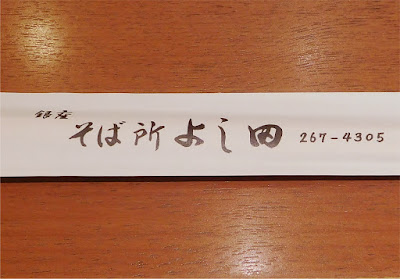 銀座
そば所 よし田 267-4305